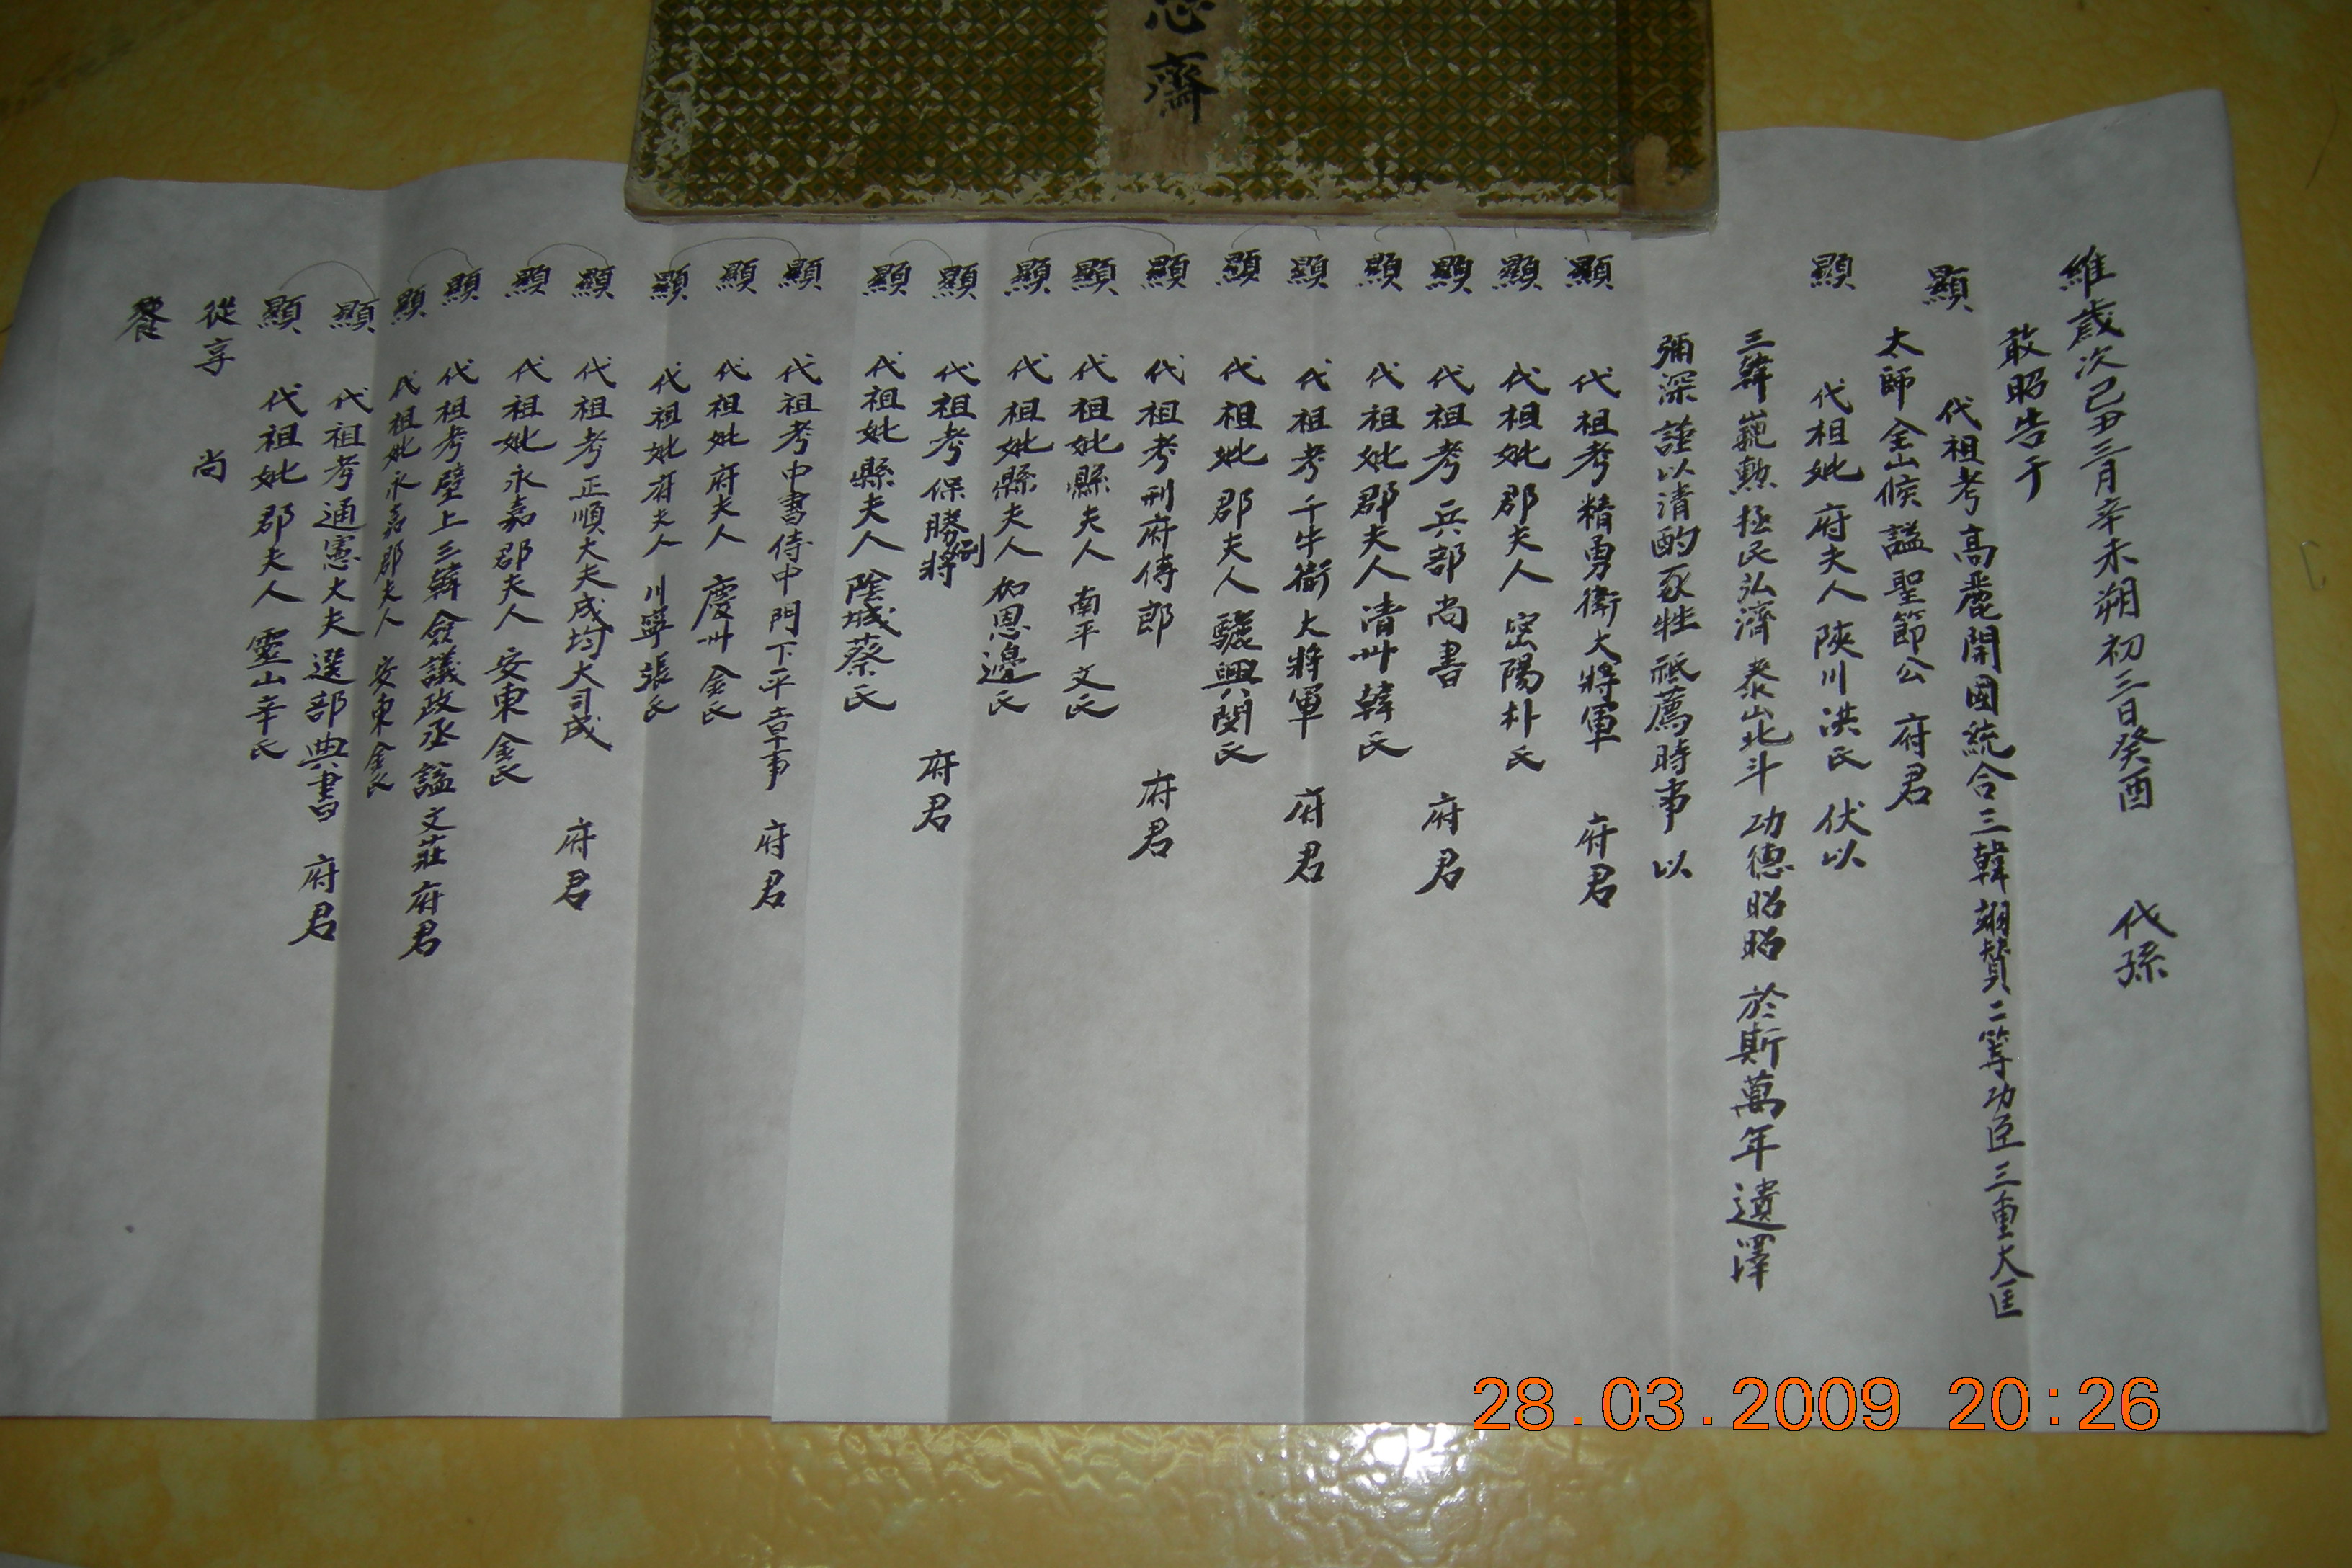 齋
維歲次己丑三月辛未朔初三日癸酉 代孫
敢昭告于
顯 代祖考高麗開國統合三韓翊贊二等功臣三重大匡
太師金山候謚聖節公 府君
顯 代祖妣府夫人陜川洪氏 伏以
三韓巍勲拯民弘濟 泰山北斗 功德昭昭 於斯萬年遺澤
彌深謹以清酌豕牲祗薦時事 以
顯 代祖考精勇衛大將軍 府君
顯 代祖妣郡夫人密陽朴氏
顯 代祖考兵部尚書 府君
顯 代祖妣郡夫人清州韓氏
顯 代祖考千牛衛大將軍 府君
顯 代祖妣郡夫人驪興閔氏
顯 代祖考刑府侍郎 府君
顯 代祖妣縣夫人南平文氏
顯 代祖妣縣夫人加恩邊氏
顯 代祖考保勝別將 府君
顯 代祖妣縣夫人陰城蔡氏
顯 代祖考中書侍中門下平章事 府君
顯 代祖妣府夫人 慶州金氏
顯 代祖妣府夫人 川寧張氏
顯 代祖考正順大夫成均大司成 府君
顯 代祖妣永嘉郡夫人 安東金氏
顯 代祖考壁上三韓僉議政丞謚文莊府君
顯 代祖妣永嘉郡夫人 安東金氏
顯 代祖考通憲大夫選部典書 府君
顯 代祖妣郡夫人靈山辛氏
從享 尚
饗
28.03.2009 20:26